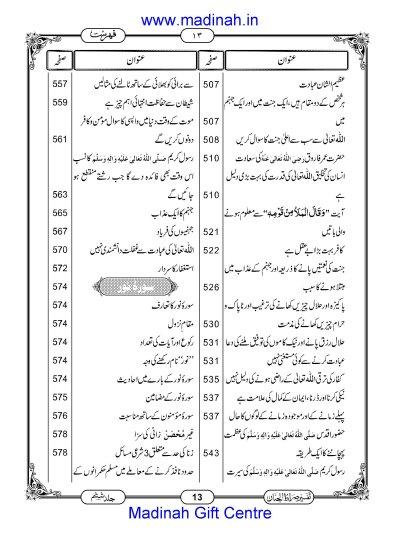 www.madinah.in
فہرست
١٣
عنوان صفحہ
عظیم الشان عبادت 507
ہر شخص کے دو مقام ہیں، ایک جنت میں اور ایک جہنم
میں 507
اللہ تعالیٰ سے سب سے اعلیٰ جنت کا سوال کریں 508
حضرت عمر فاروق رَضِیَ اللہُ تَعَالٰی عَنْہُ کی سعادت 510
انسان کی تخلیق اللہ تعالیٰ کی قدرت کی بہت بڑی دلیل
ہے 510
آیت ”وَقَالَ الْمَلَاُ مِنْ قَوْمِهِ“ سے معلوم ہونے
والی باتیں 521
کافر بہت بڑا بے عقل ہے 522
جنت کی نعمتیں پانے کا ذریعہ اور جہنم کے عذاب میں
مبتلا ہونے کا سبب 526
پاکیزہ اور حلال چیزیں کھانے کی ترغیب اور ناپاک و
حرام چیزیں کھانے کی مذمت 530
حلال رزق پانے اور نیک کاموں کی توفیق ملنے کی دعا 531
عبادت کرنے سے کوئی مستثنیٰ نہیں 531
کفار کی ترقی اللہ تعالیٰ کے راضی ہونے کی دلیل نہیں 535
نیکی کرنا اور ڈرنا، ایمان کے کمال کی علامت ہے 537
پہلے زمانے کے اور موجودہ زمانے کے لوگوں کا حال 537
حضور اقدس صَلَّی اللہُ تَعَالٰی عَلَیْہِ وَاٰلِہٖ وَسَلَّم کی عظمت
پہچاننے کا ایک طریقہ 543
رسول کریم صَلَّی اللہُ تَعَالٰی عَلَیْہِ وَاٰلِہٖ وَسَلَّم کی سیرت
عنوان صفحہ
سے برائی کو بھلائی کے ساتھ ٹالنے کی مثالیں 557
شیطان سے حفاظت انتہائی اہم چیز ہے 559
موت کے وقت دنیا میں واپسی کا سوال مؤمن و کافر
دونوں کریں گے 561
رسول کریم صَلَّی اللہُ تَعَالٰی عَلَیْہِ وَاٰلِہٖ وَسَلَّم کا نسب
اس وقت بھی فائدہ دے گا جب رشتے منقطع ہو
جائیں گے 563
جہنم کا ایک عذاب 565
جہنمیوں کی فریاد 567
اللہ تعالیٰ کی عبادت سے غفلت دانشمندی نہیں 570
استغفار کا سردار 572
سورۂ نور 574
سورۂ نور کا تعارف 574
مقام نزول 574
رکوع اور آیات کی تعداد 574
”نور“ نام رکھنے کی وجہ 574
سورۂ نور کے بارے میں احادیث 574
سورۂ نور کے مضامین 575
سورۂ مومنون کے ساتھ مناسبت 576
غیر مُحْصَنْ زانی کی سزا 578
زنا کی حد سے متعلق 3 شرعی مسائل 578
حدود نافذ کرنے کے معاملے میں مسلم حکمرانوں کے
تفسیر صراط الجنان
13
جلد ششم
Madinah Gift Centre